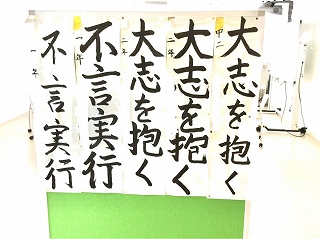 大志を抱く
中二
大志を抱く
二年
大志を抱く
二年
不言実行
一年
不言実行
一年